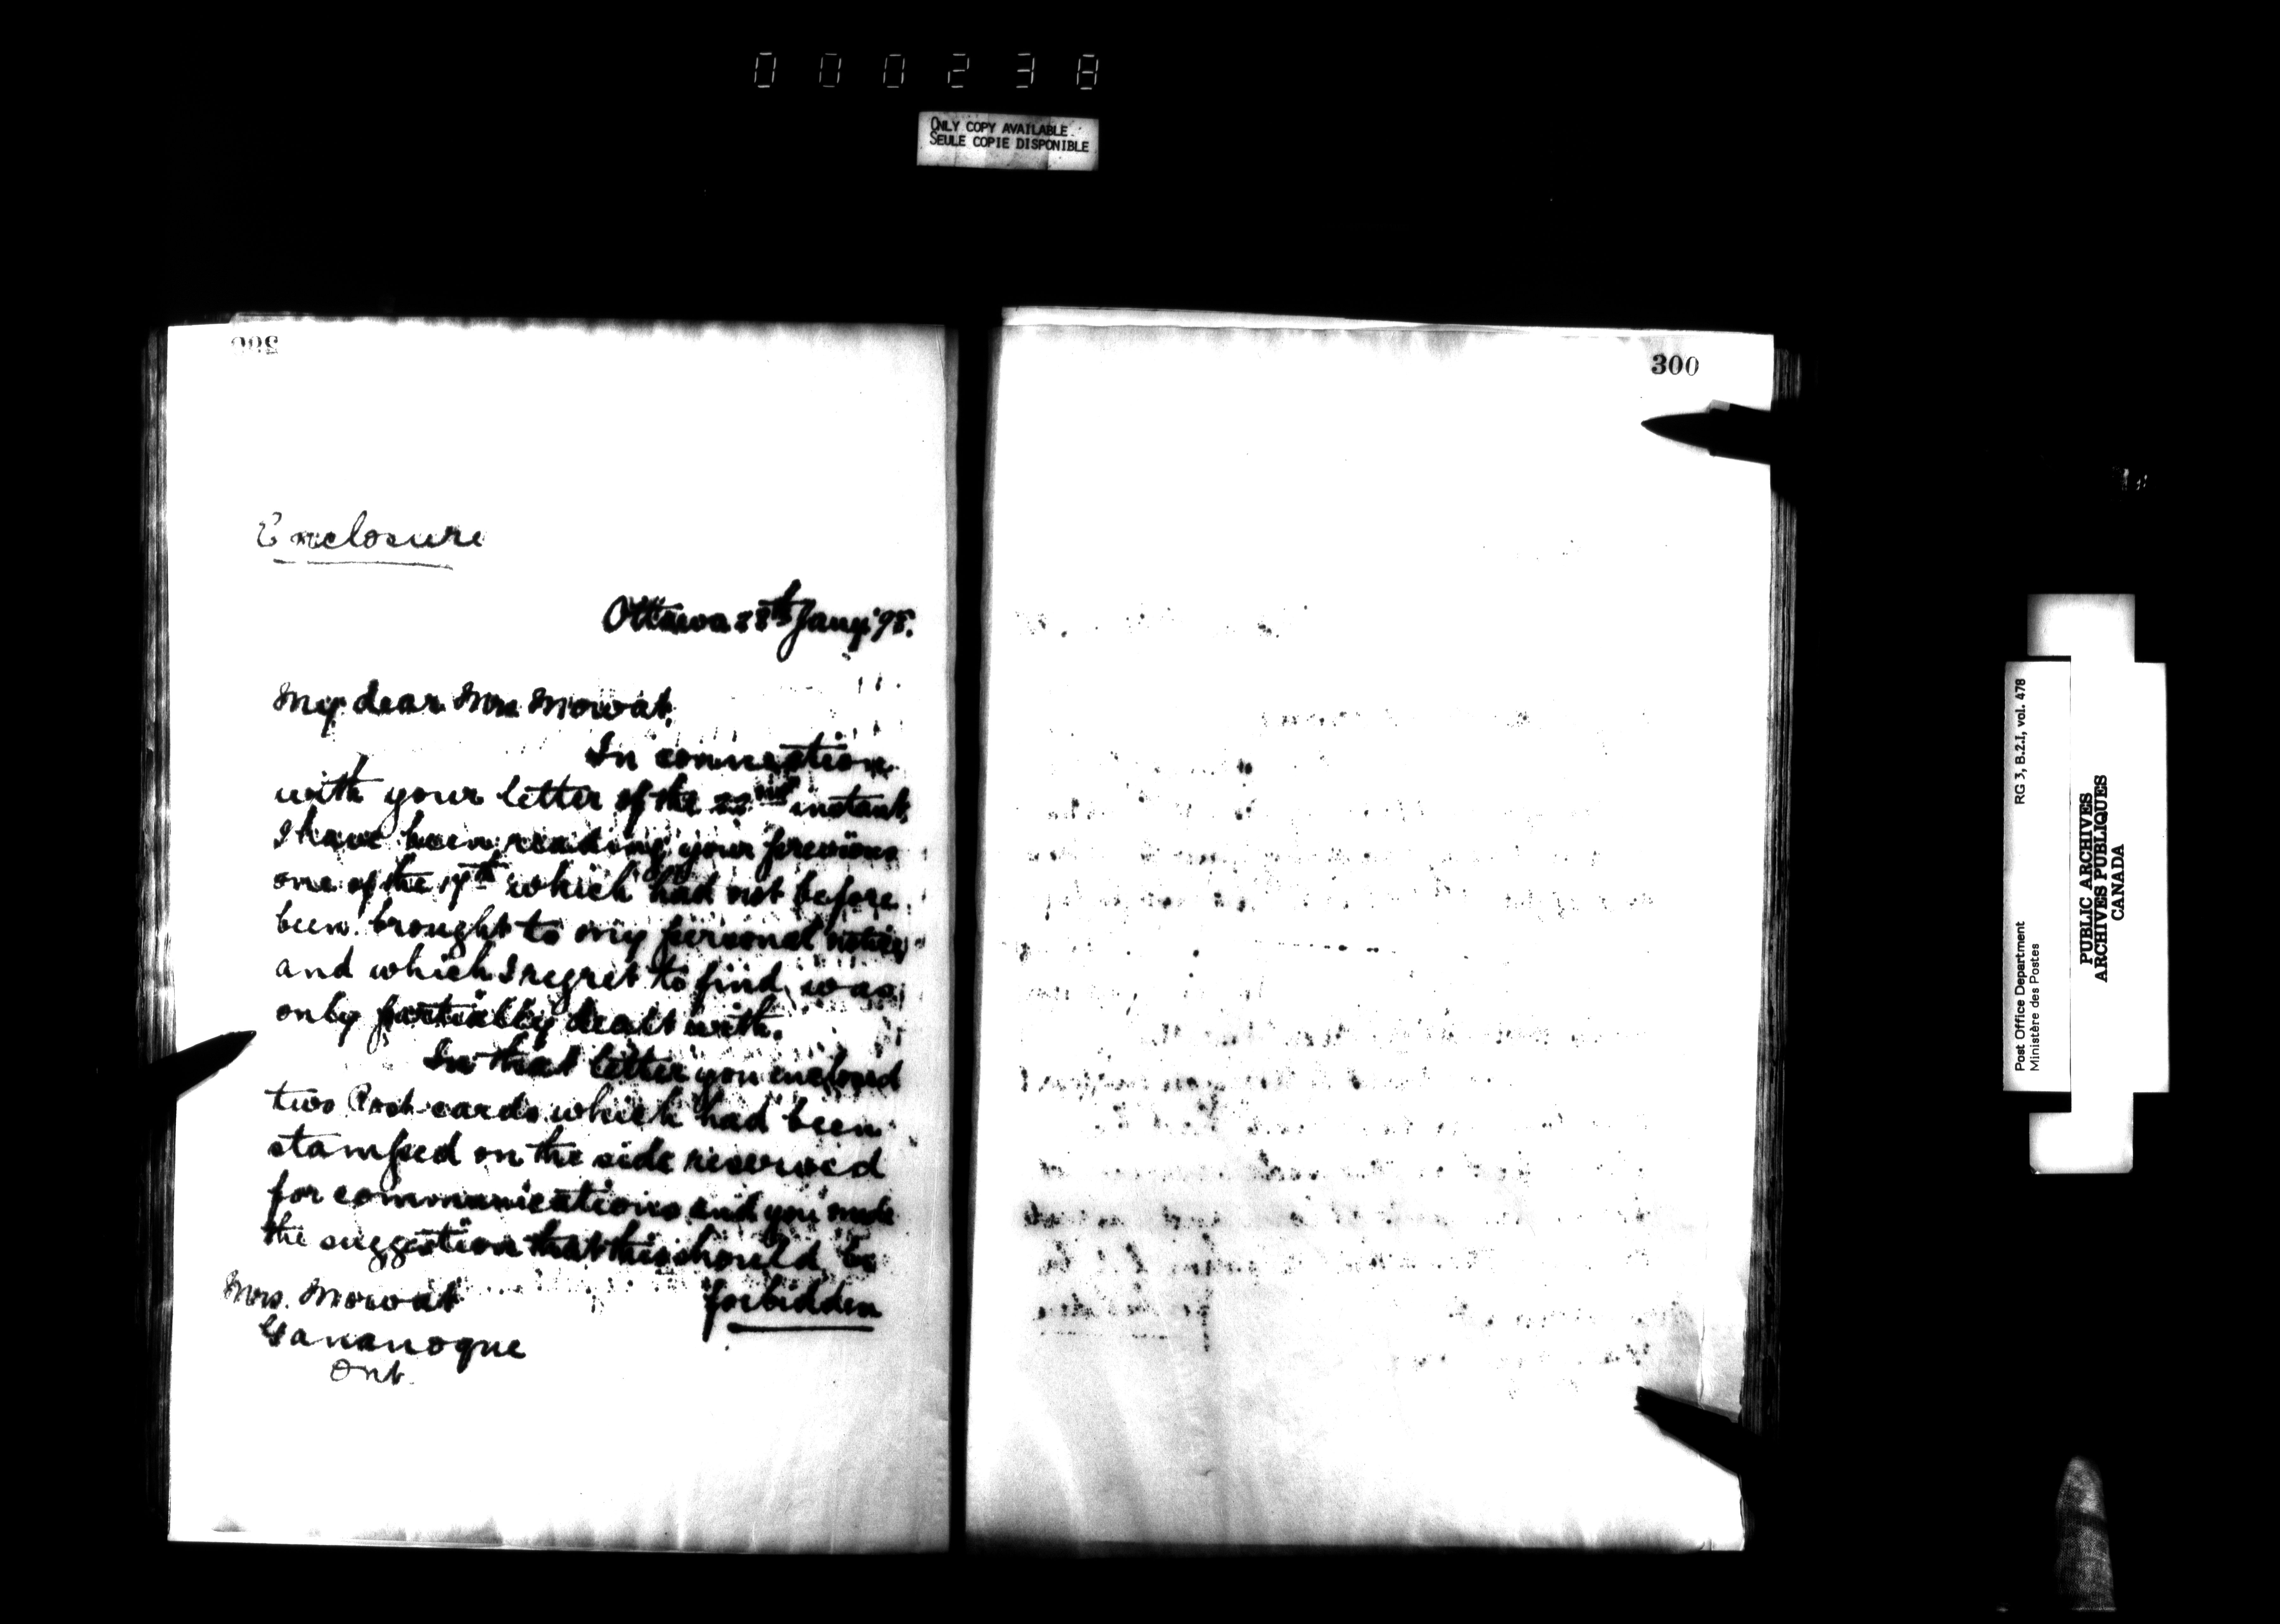 000238
ONLY COPY AVAILABLE
SEULE COPIE DISPONIBLE
300
Enclosure
Ottawa 28th Jany '98.
My dear Mrs Mowat,
In connection
with your letter of the 22nd instant,
I have been reading your previous
one of the 17th which had not before
been brought to my personal notice,
and which I regret to find was
only partially dealt with.
In that letter you enclosed
two Post-cards which had been
stamped on the side reserved
for communications and you made
the suggestion that this should be
forbidden
Mrs. Mowat
Gananoque
Ont.
300
Post Office Department RG 3, B.2.I, vol. 478
Ministère des Postes
PUBLIC ARCHIVES
ARCHIVES PUBLIQUES
CANADA